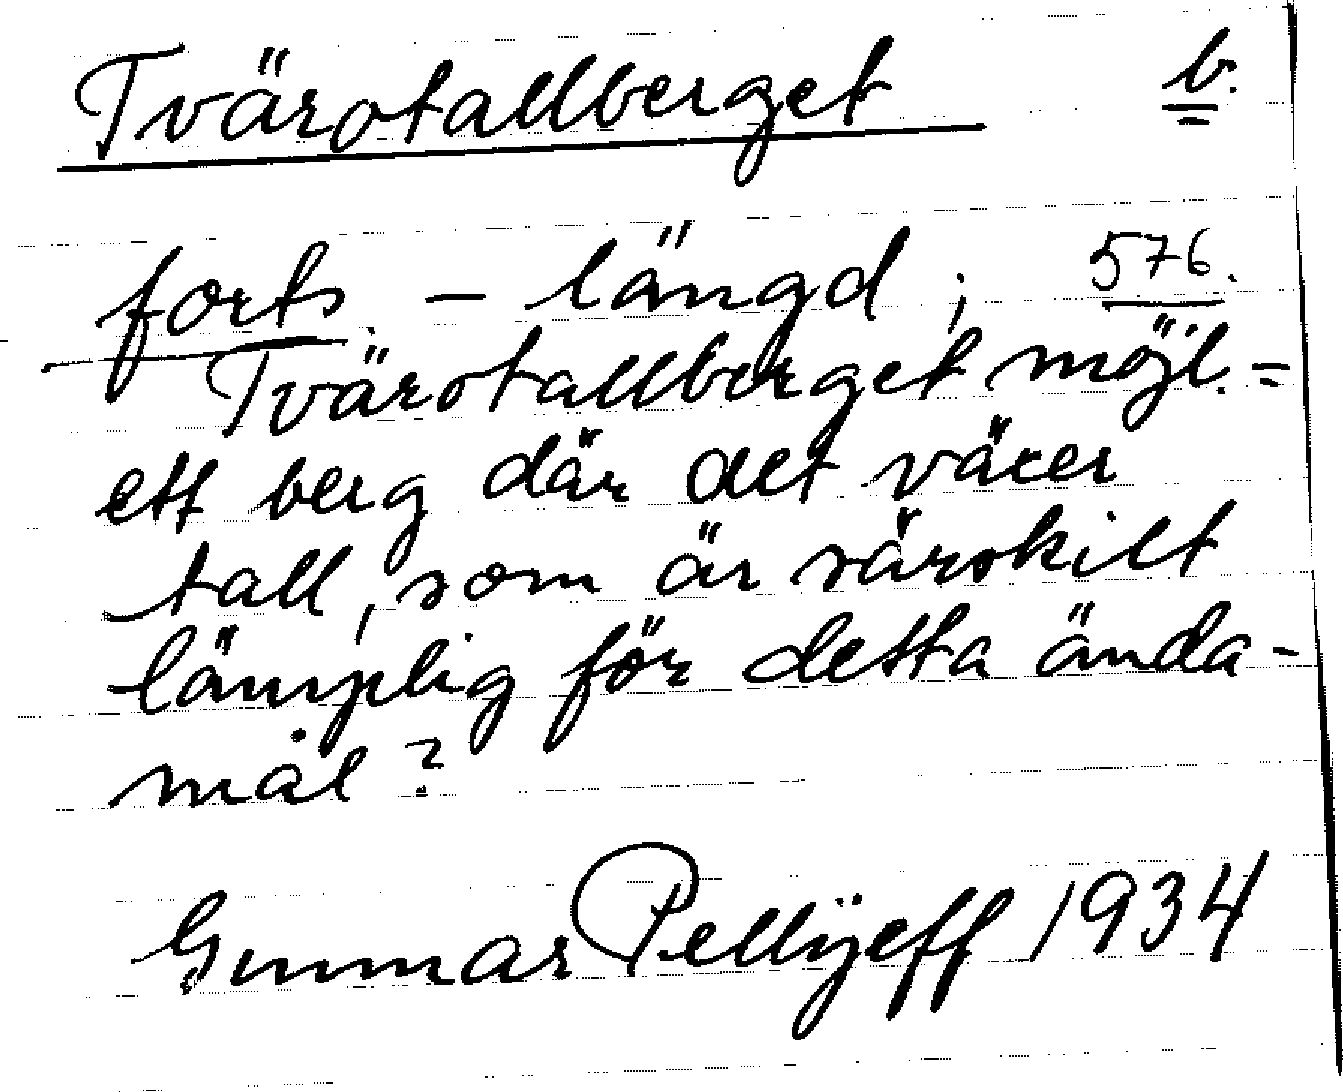 Tvärotallberget b.
forts. – längd ; 576.
Tvärotallberget möjl. =
ett berg där det växer
tall, som är särskilt
lämplig för detta ända-
mål?
Gunnar Pellijeff 1934